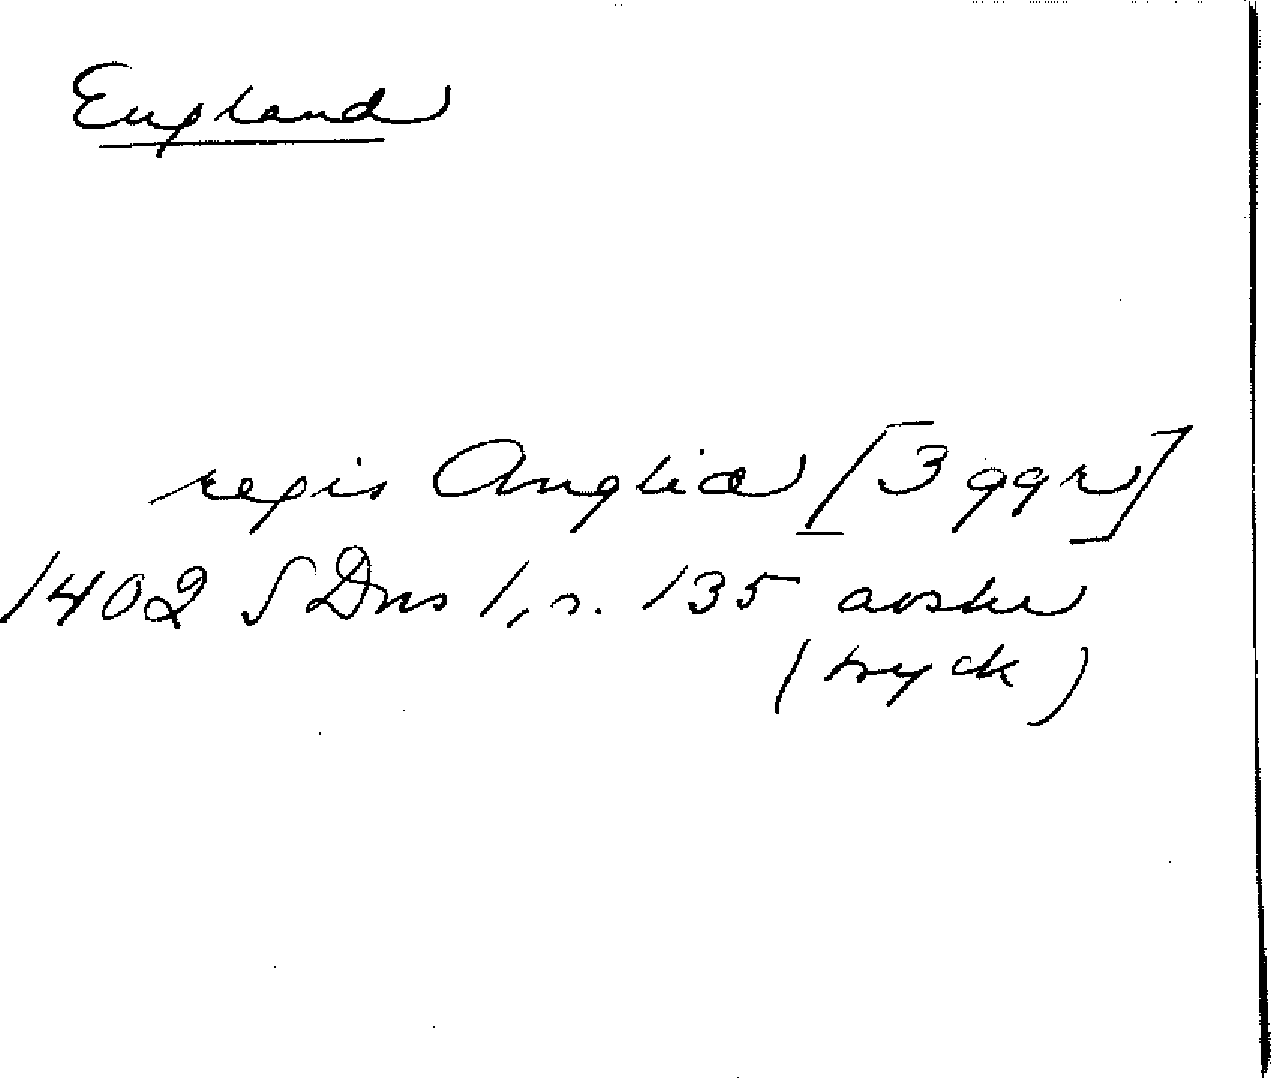 England
regis Angliæ [3 ggr]
1402 SDns 1, s. 135 avskr
(tryck)